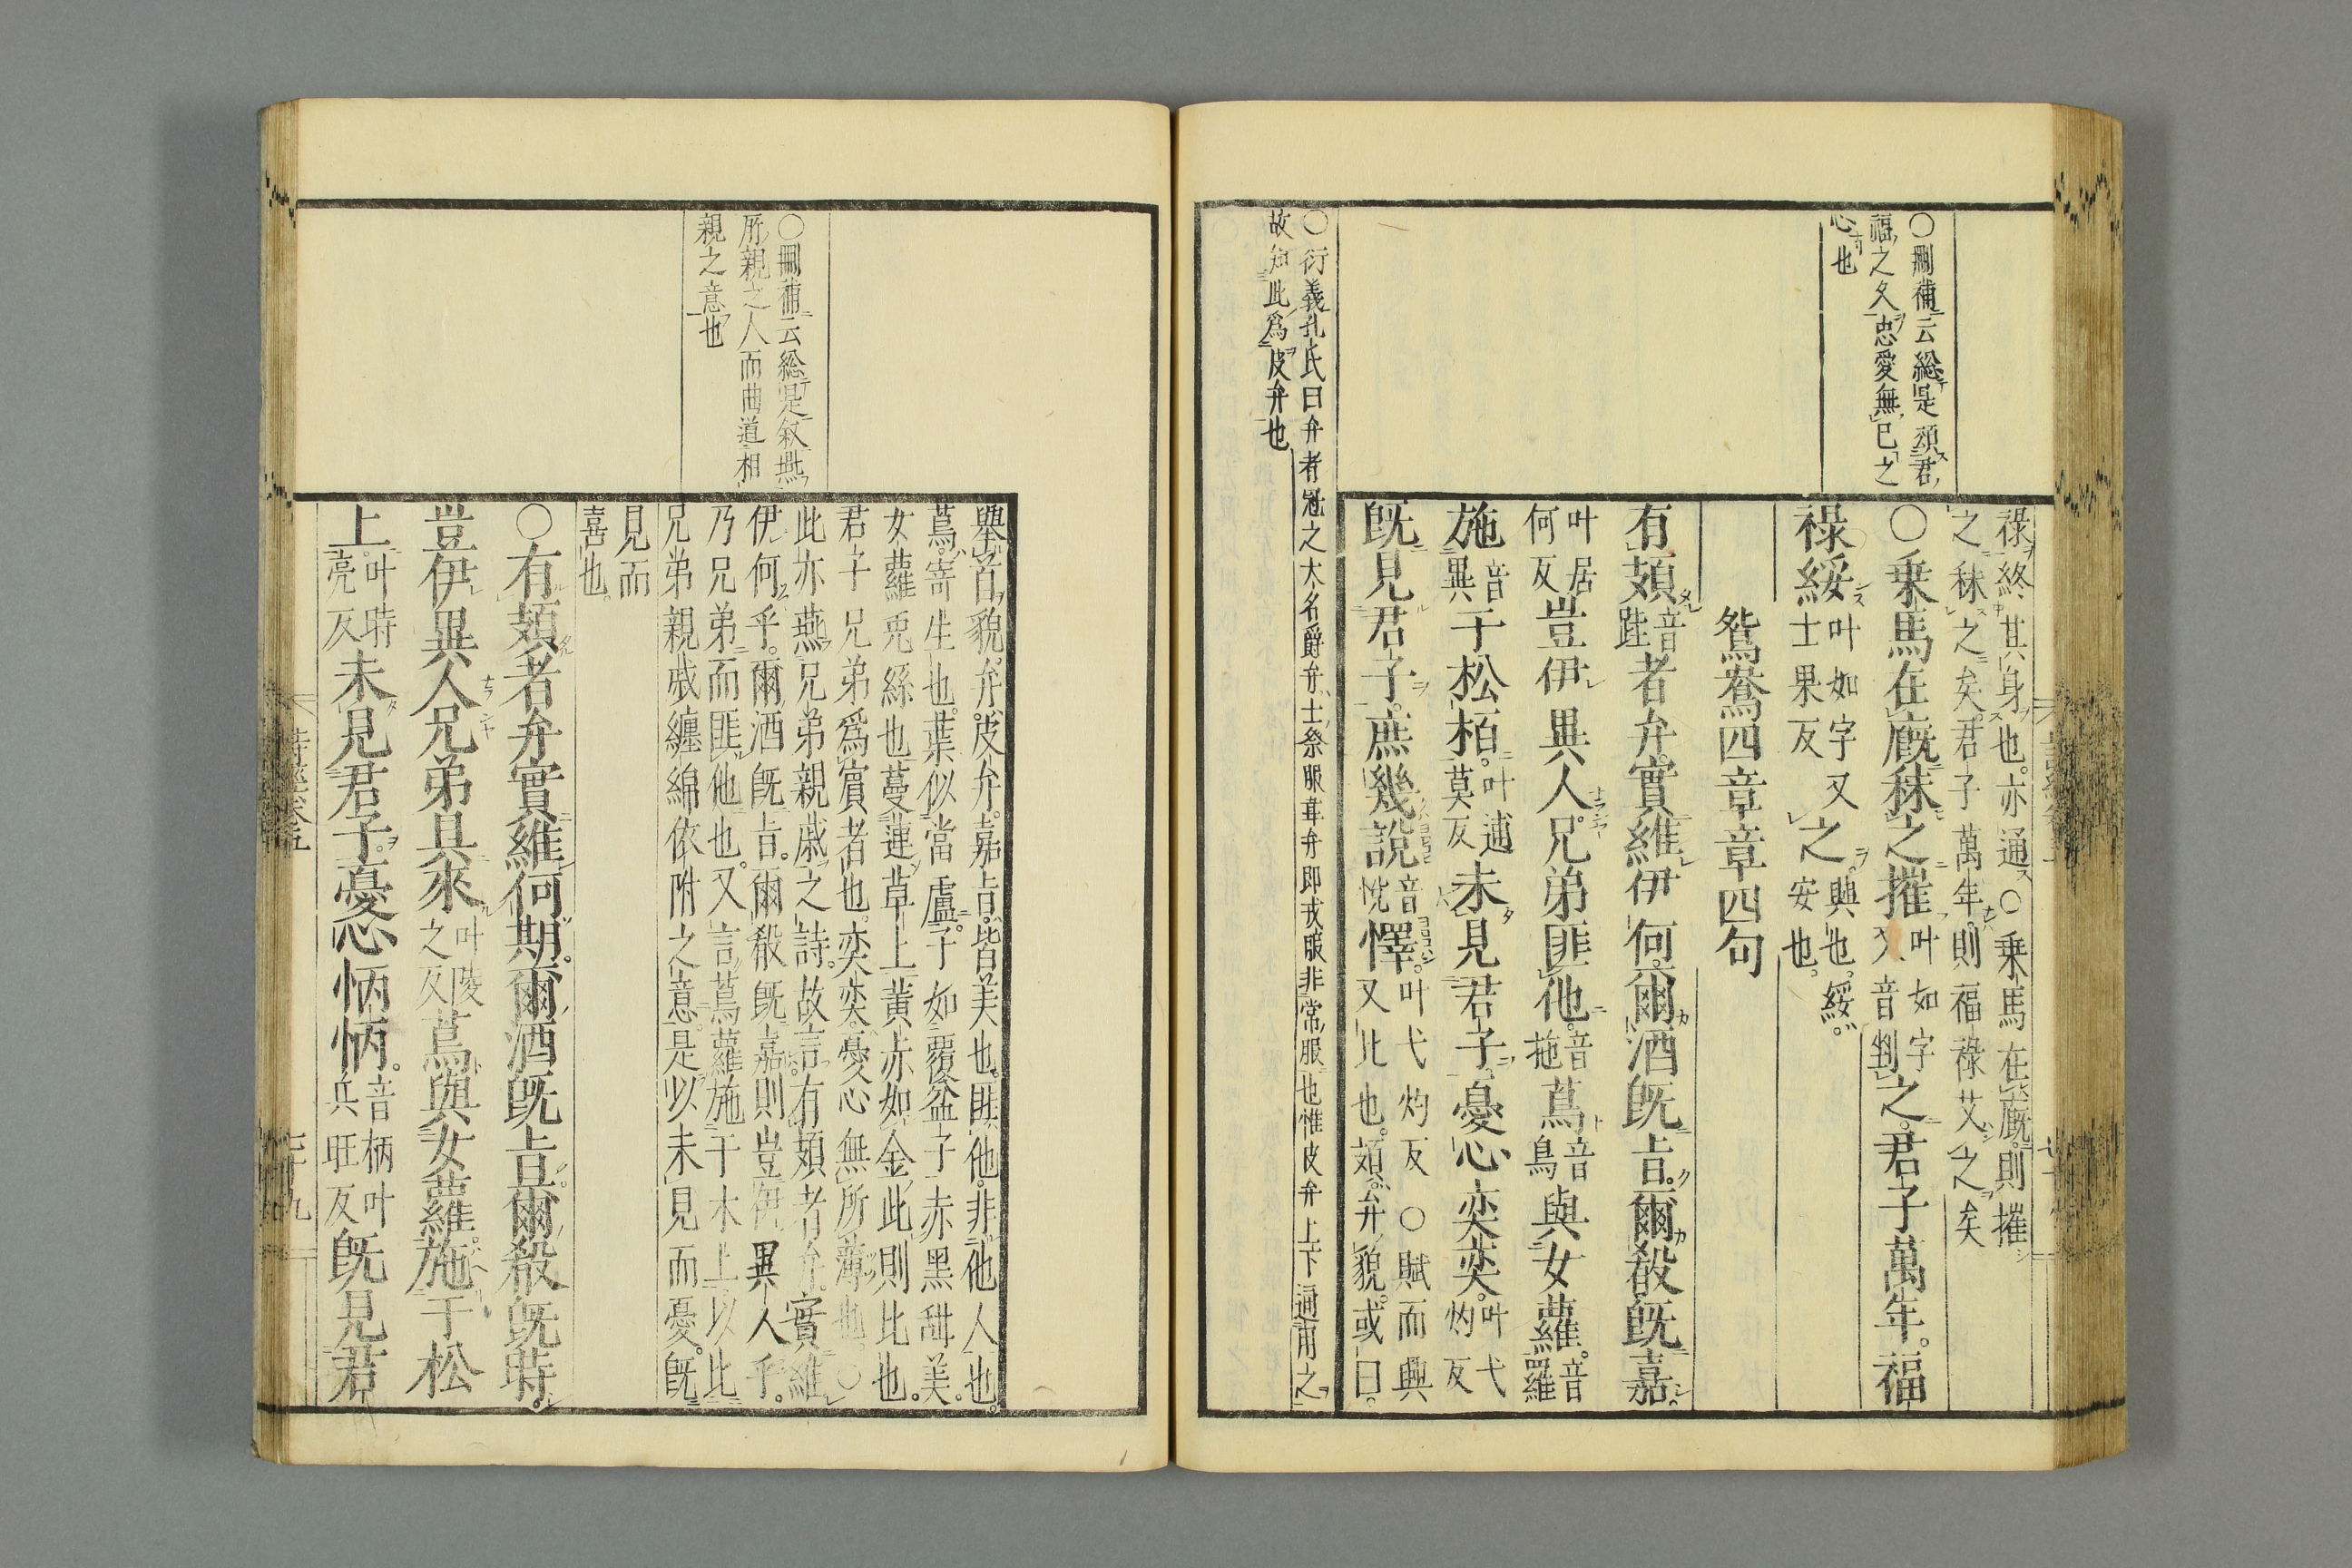 〇刪補云総是頌君
福之久忠愛無已之
心也
祿終其身也。亦通〇乗馬在廄。則摧
之秣之矣。君子萬年。則福祿艾之矣
〇乗馬在廄。秣之摧叶如字又音剉之。君子萬年。福
祿綏叶如字又士果反之。興也。綏。安也。
鴛鴦四章章四句
有頍音跬者弁。實維伊何。爾酒旣㫖。爾殽旣嘉。
叶居何反豈伊異人。兄弟匪他。音拖蔦音鳥與女蘿。音羅
施音異于松栢。叶逋莫反未見君子。憂心奕奕。叶弋灼反
旣見君子。庶幾說音悅懌。叶弋灼反〇賦而興又比也。頍。弁貌。或曰。
〇衍義孔氏曰弁者冠之大名爵弁士祭服韋弁即戎服非常服也惟皮弁上下通用之
故知此爲皮弁也
舉首貌。弁。皮弁。嘉㫖。皆美也。匪他。非他人也。
蔦。寄生也。葉似當盧。子如覆盆子赤黑甜美。
女蘿兎絲也蔓蓮草上黃赤如金此則比也。
君子兄弟爲賔者也。奕奕。憂心無所薄也。〇
此亦燕兄弟親戚之詩。故言有頍者弁。實維
伊何乎。爾酒旣㫖。爾殽旣嘉。則豈伊異人乎。
乃兄弟而匪他也。又言蔦蘿施于木上以比
兄弟親戚纏綿依附之意。是以未見而憂。旣
見而
喜也。
〇刪補云総是叙燕
所親之人而曲道相
親之意也
〇有頍者弁實維何期。爾酒旣㫖。爾殽旣時。
豈伊異人兄弟具來叶陵之反蔦與女蘿。施于松
上。叶時亮反未見君子。憂心怲怲。音柄叶兵旺反旣見君
詩經卷五